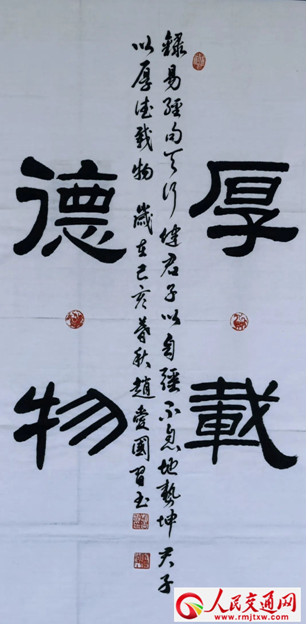 厚德
載物
録易經句天行健君子以自彊不息地勢坤君子
以厚德載物 歲在己亥暮秋趙愛國
人民交通网
www.rmjtxw.com